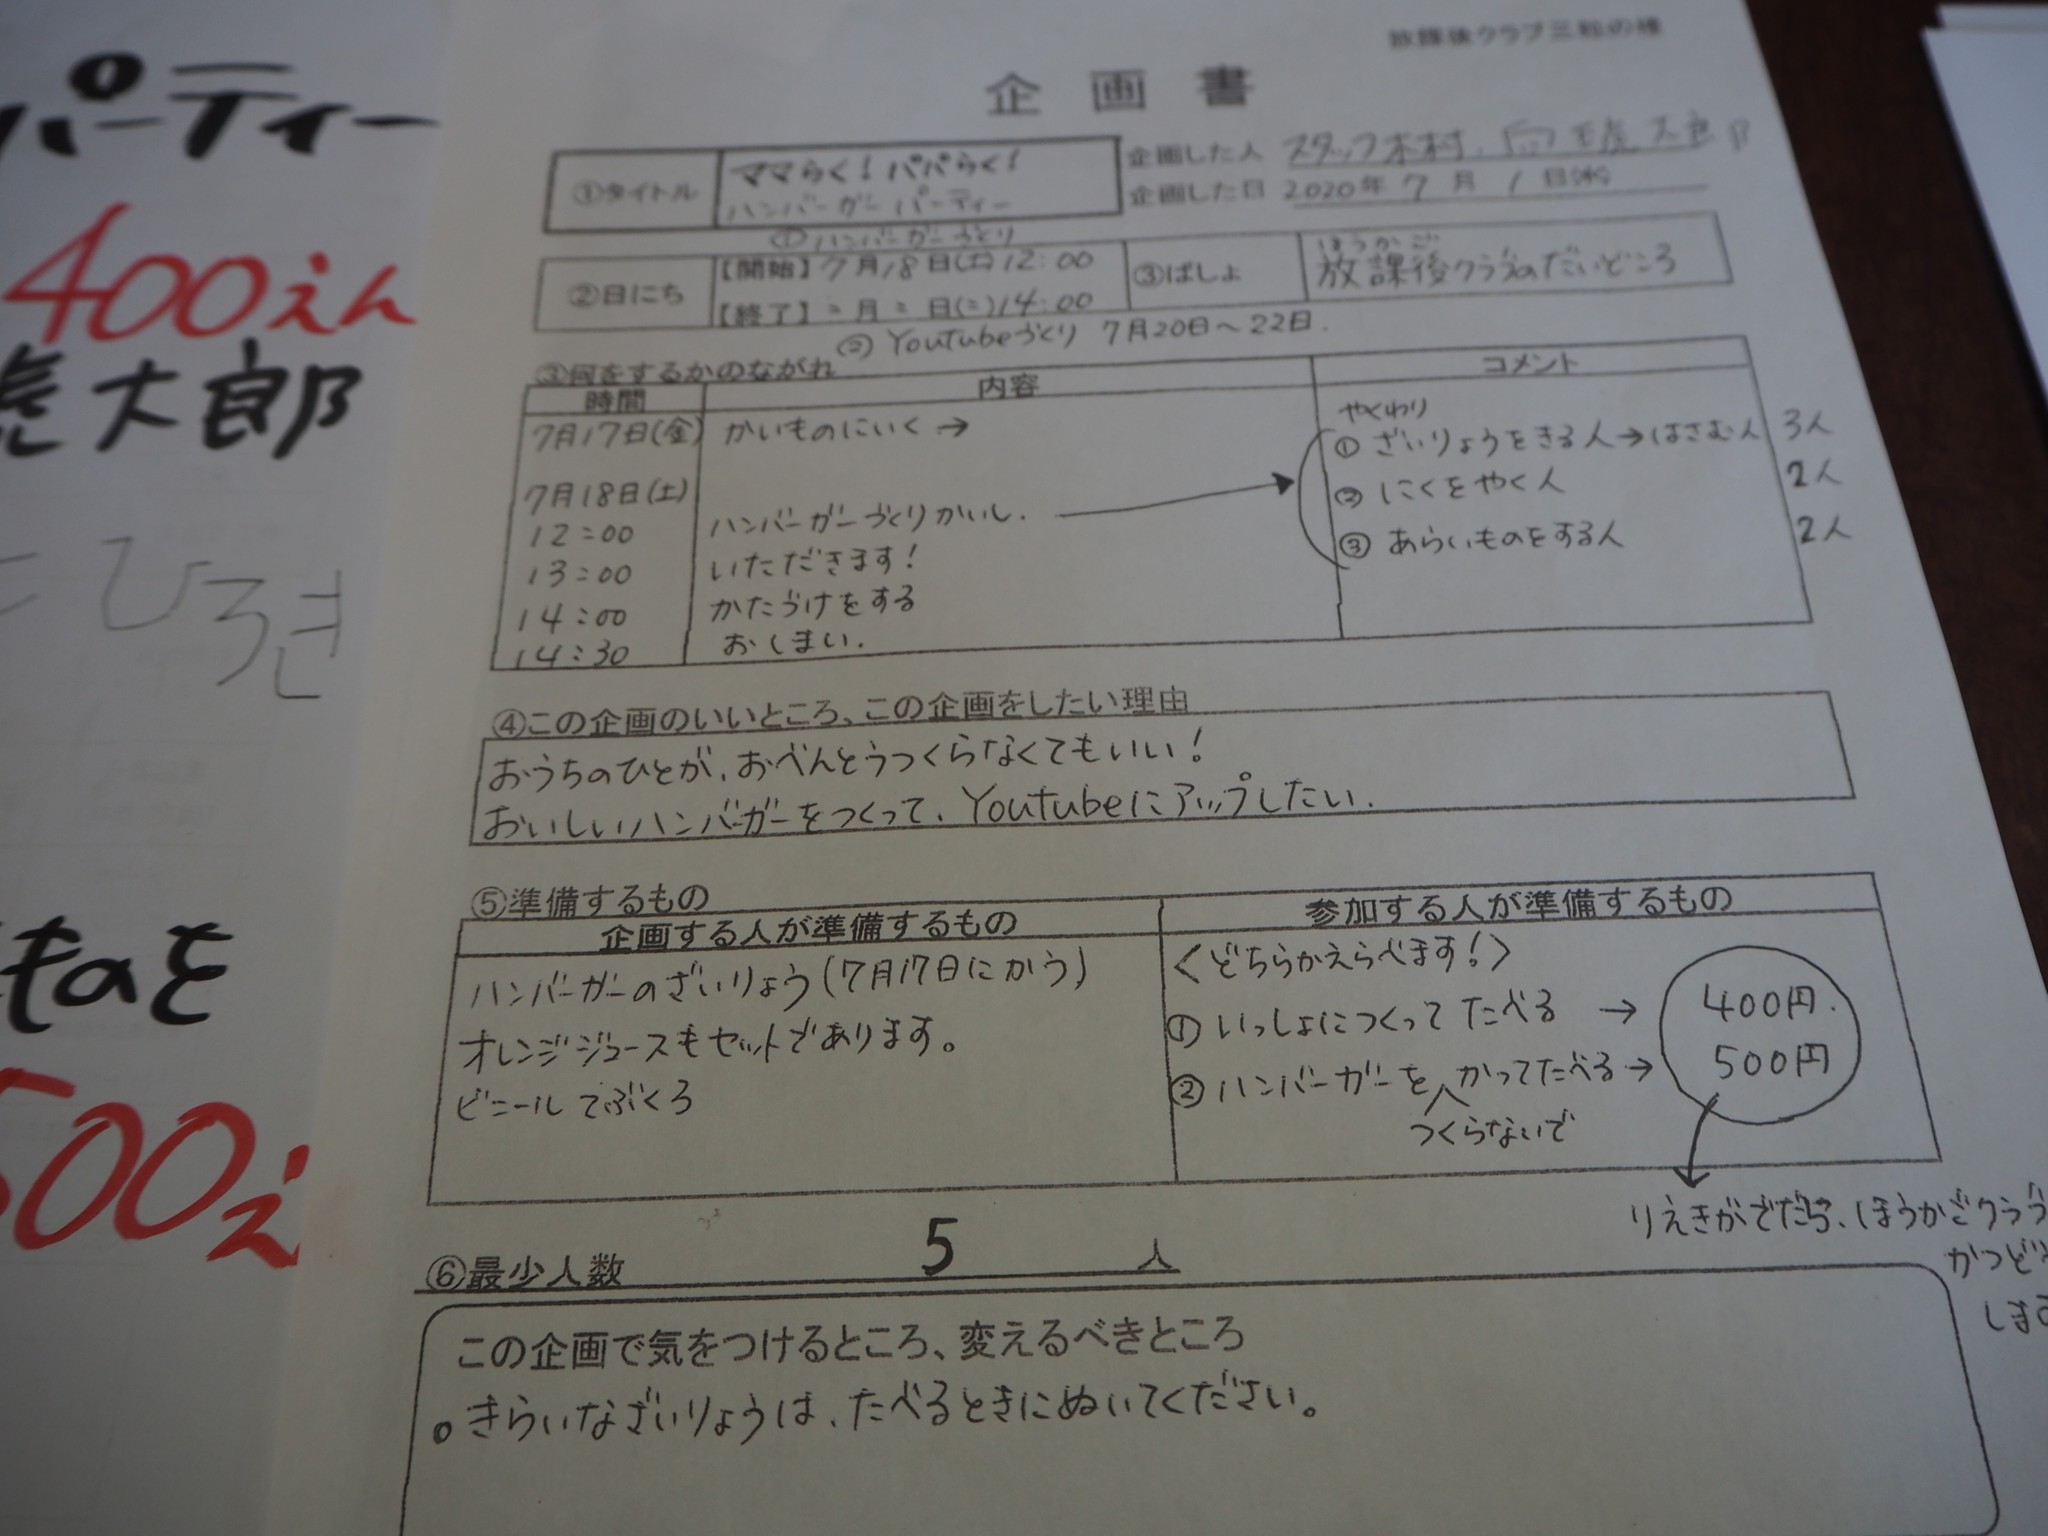 パーティー
400えん
虎太郎
ひろき
ものを
500え
放課後クラブ三和の様
企画書
①タイトル
ママらく！パパらく！
ハンバーガーパーティー
企画した人 スタッフ木村、 虎太郎
企画した日 2020年 7月 1日(水)
①ハンバーガーづくり
②日にち
【開始】7月18日(土)12:00
【終了】〃月〃日(〃)14:00
③ばしょ
ほうかご
放課後クラブのだいどころ
② Youtubeづくり 7月20日〜22日.
③何をするかのながれ
時間 内容 コメント
7月17日(金) かいものにいく→
7月18日(土)
12:00 ハンバーガーづくりかいし.
13:00 いただきます！
14:00 かたづけをする
14:30 おしまい.
やくわり
① ざいりょうをきる人→はさむ人 3人
② にくをやく人 2人
③ あらいものをする人 2人
④この企画のいいところ、この企画をしたい理由
おうちのひとが、おべんとうつくらなくてもいい！
おいしいハンバーガーをつくって、Youtubeにアップしたい.
⑤準備するもの
企画する人が準備するもの
ハンバーガーのざいりょう(7月17日にかう)
オレンジジュースもセットであります。
ビニールてぶくろ
参加する人が準備するもの
〈どちらかえらべます！〉
① いっしょにつくってたべる → 400円.
② ハンバーガーをかってたべる→ 500円
つくらないで
りえきがでたら、ほうかごクラブ
かつど
します
⑥最少人数 5 人
この企画で気をつけるところ、変えるべきところ
○きらいなざいりょうは、たべるときにぬいてください。